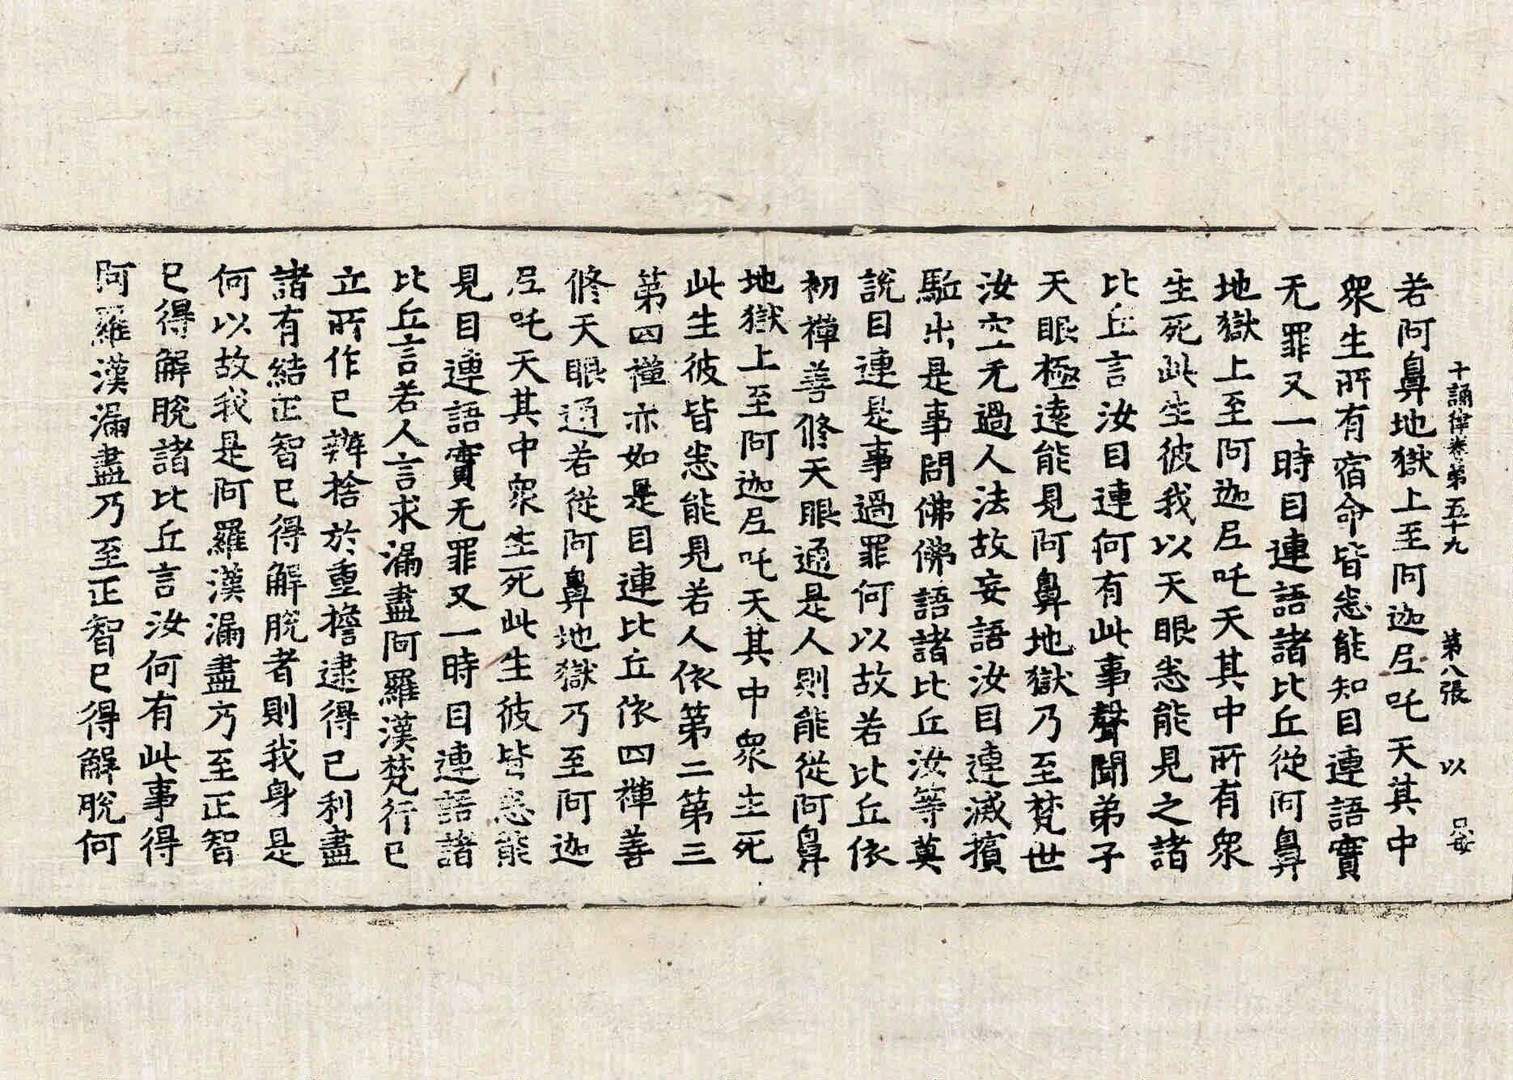 十誦律卷第五十九　第八張　以
若阿鼻地獄上至阿迦㞐吒天其中
衆生所有宿命皆悉能知目連語實
无罪又一時目連語諸比丘從阿鼻
地獄上至阿迦㞐吒天其中所有衆
生死此生彼我以天眼悉能見之諸
比丘言汝目連何有此事聲聞弟子
天眼極遠能見阿鼻地獄乃至梵世
汝空无過人法故妄語汝目連滅擯
駈出是事問佛佛語諸比丘汝等莫
說目連是事過罪何以故若比丘依
初禪善修天眼通是人則能從阿鼻
地獄上至阿迦㞐吒天其中衆生死
此生彼皆悉能見若人依第二第三
第四禪亦如是目連比丘依四禪善
修天眼通若從阿鼻地獄乃至阿迦
㞐吒天其中衆生死此生彼皆悉能
見目連語實无罪又一時目連語諸
比丘言若人言求漏盡阿羅漢梵行已
立所作已辦捨於重擔逮得已利盡
諸有結正智已得解脫者則我身是
何以故我是阿羅漢漏盡乃至正智
已得解脫諸比丘言汝何有此事得
阿羅漢漏盡乃至正智已得解脫何